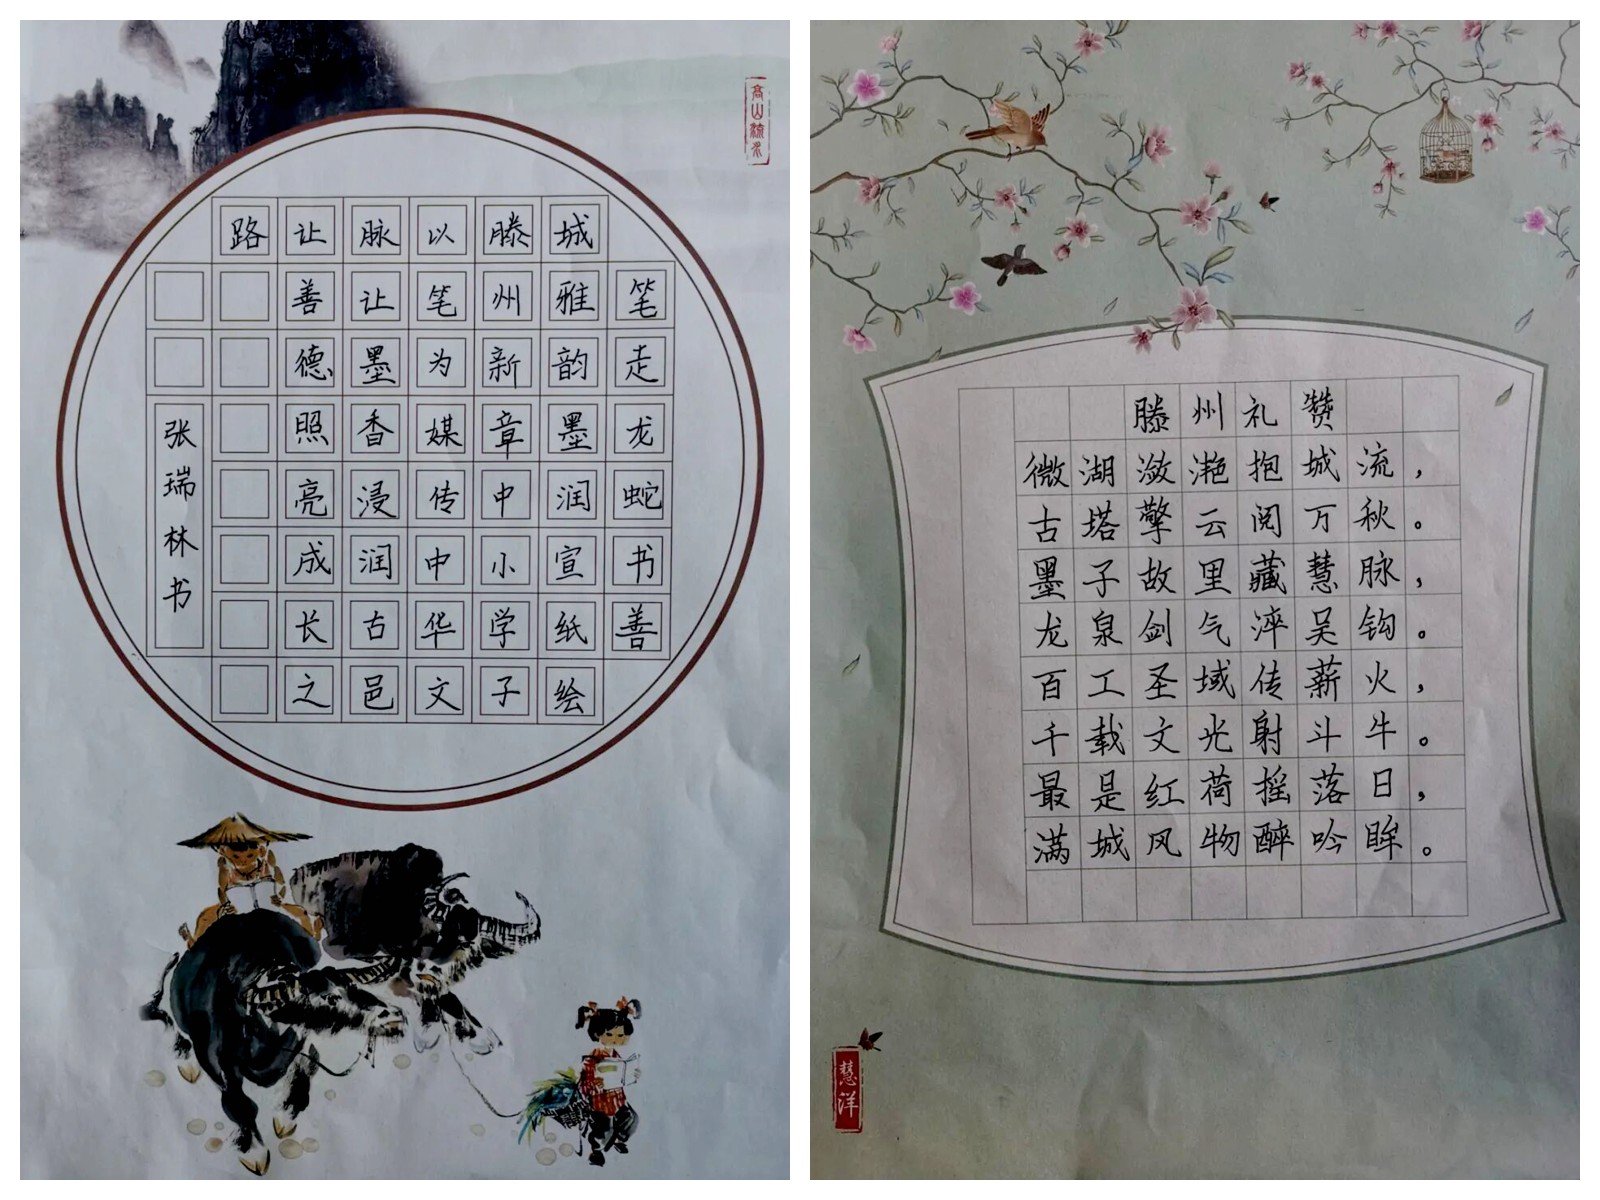 高山流水
笔走龙蛇书善
城雅韵墨润宣纸绘
滕州新章中小学子
以笔为媒传中华文
脉让墨香浸润古邑
让善德照亮成长之
路
张瑞林书
滕州礼赞
微湖潋滟抱城流，
古塔擎云阅万秋。
墨子故里藏慧脉，
龙泉剑气淬吴钩。
百工圣域传薪火，
千载文光射斗牛。
最是红荷摇落日，
满城风物醉吟眸。
慧洋